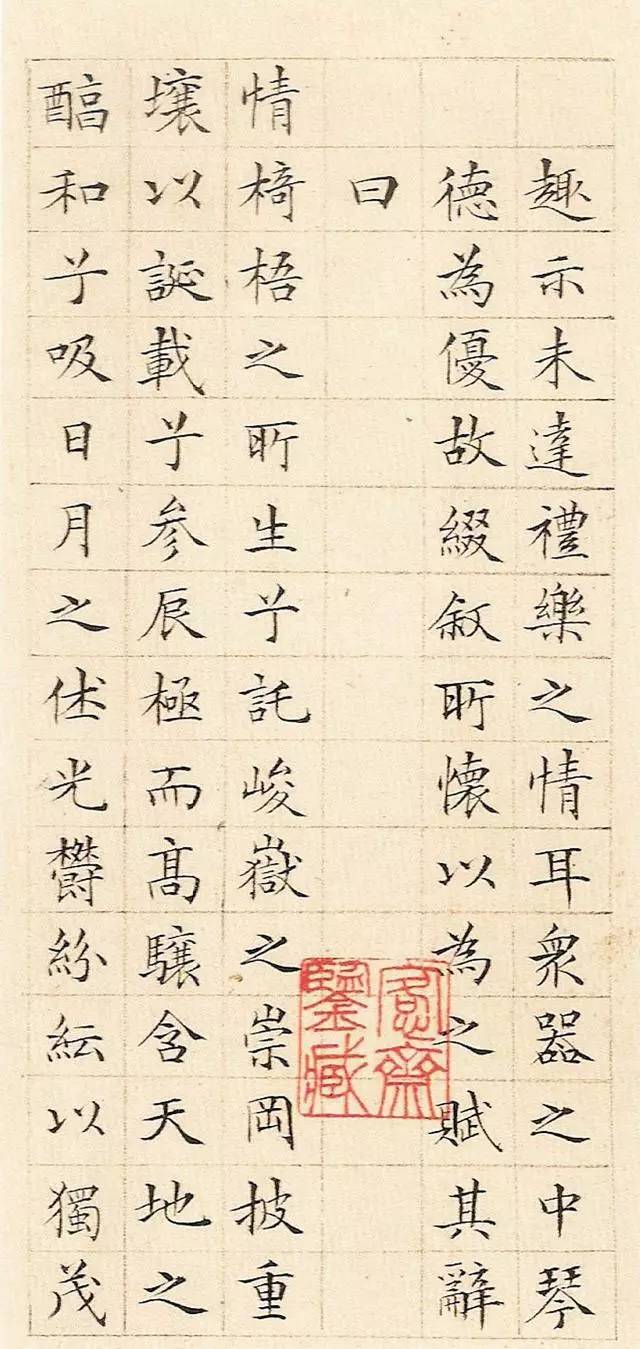 趣示未達禮樂之情耳衆器之中琴
德為優故綴敘所懷以為之賦其辭
曰
情椅梧之所生兮託峻嶽之崇岡披重
壤以誕載兮参辰極而髙驤含天地之
醕和兮吸日月之休光鬱紛紜以獨茂
愙齋
鑒藏